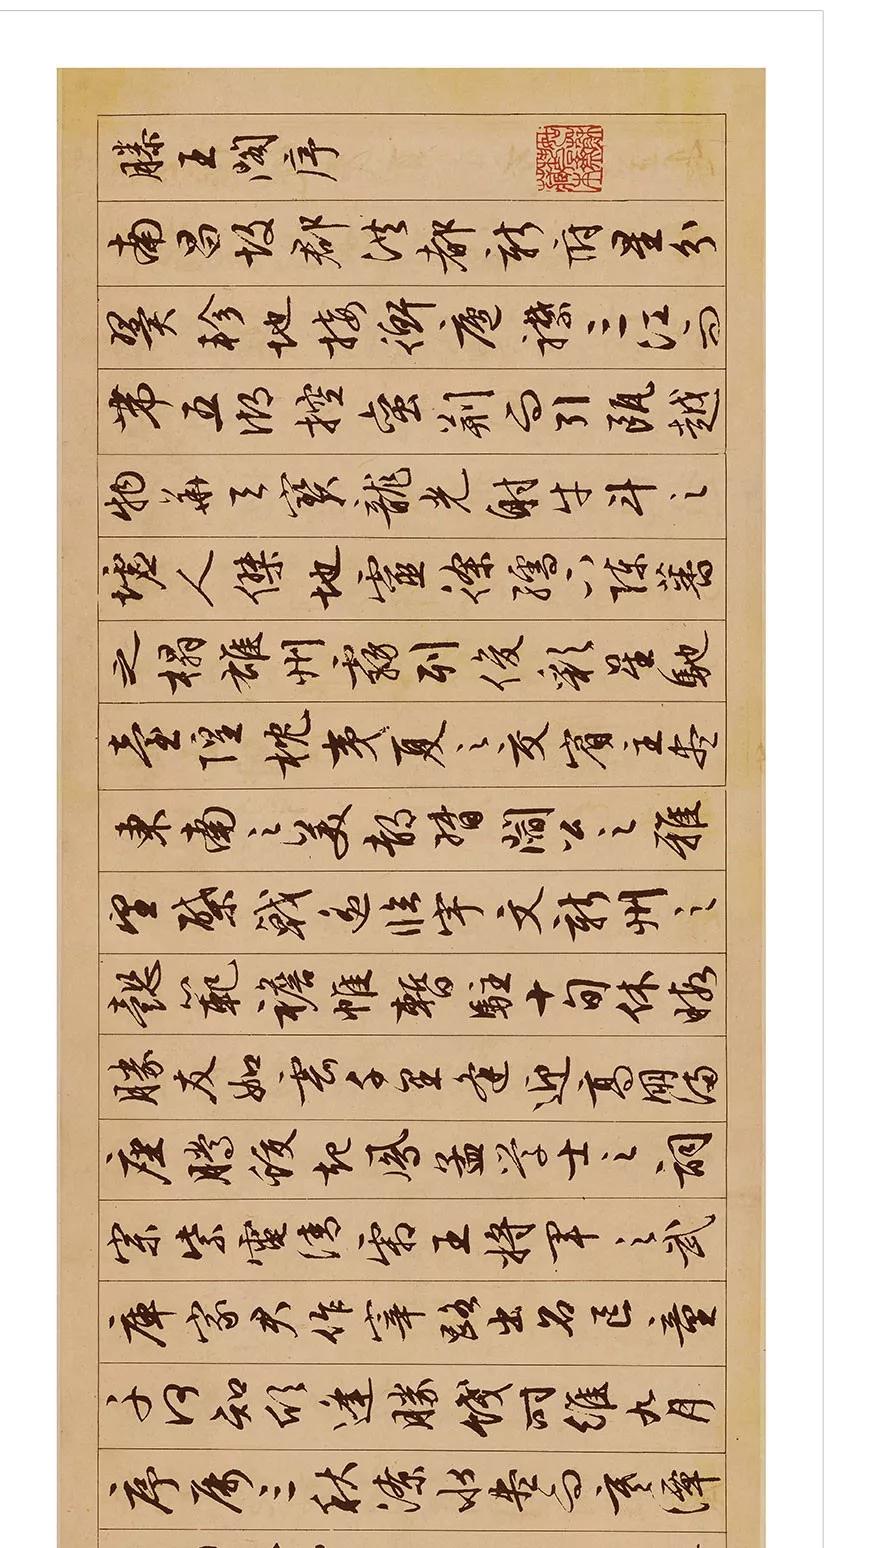 滕王閣序
南昌故郡洪都新府星分
翼軫地接衡廬襟三江而
帶五湖控蠻荊而引甌越
物華天寶龍光射牛斗之
墟人傑地靈徐孺下陳蕃
之榻雄州霧列俊彩星馳
臺隍枕夷夏之交賓主盡
東南之美都督閻公之雅
望棨戟遥臨宇文新州之
懿範襜帷暫駐十旬休暇
勝友如雲千里逢迎高朋滿
座騰蛟起鳳孟学士之詞
宗紫電清霜王將軍之武
庫家君作宰路出名區童
子何知躬逢勝餞時維九月
序屬三秋潦水盡而寒潭